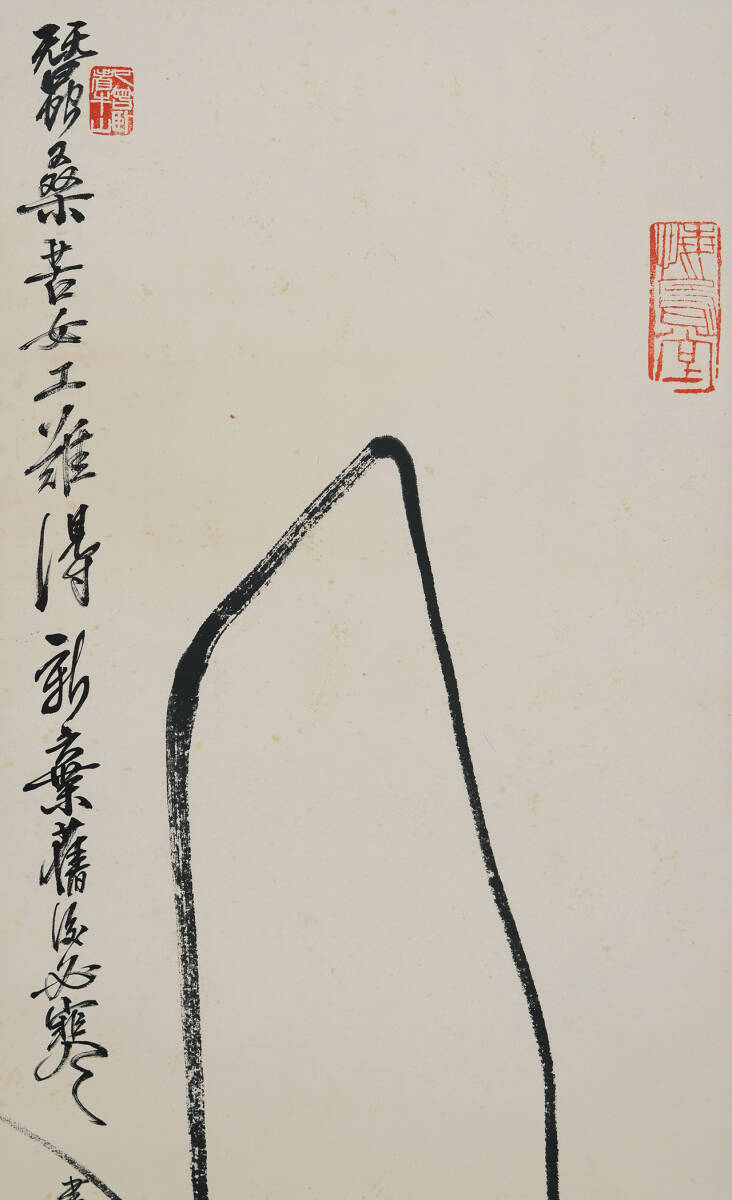 蠶桑苦女工難得新棄舊後必寒